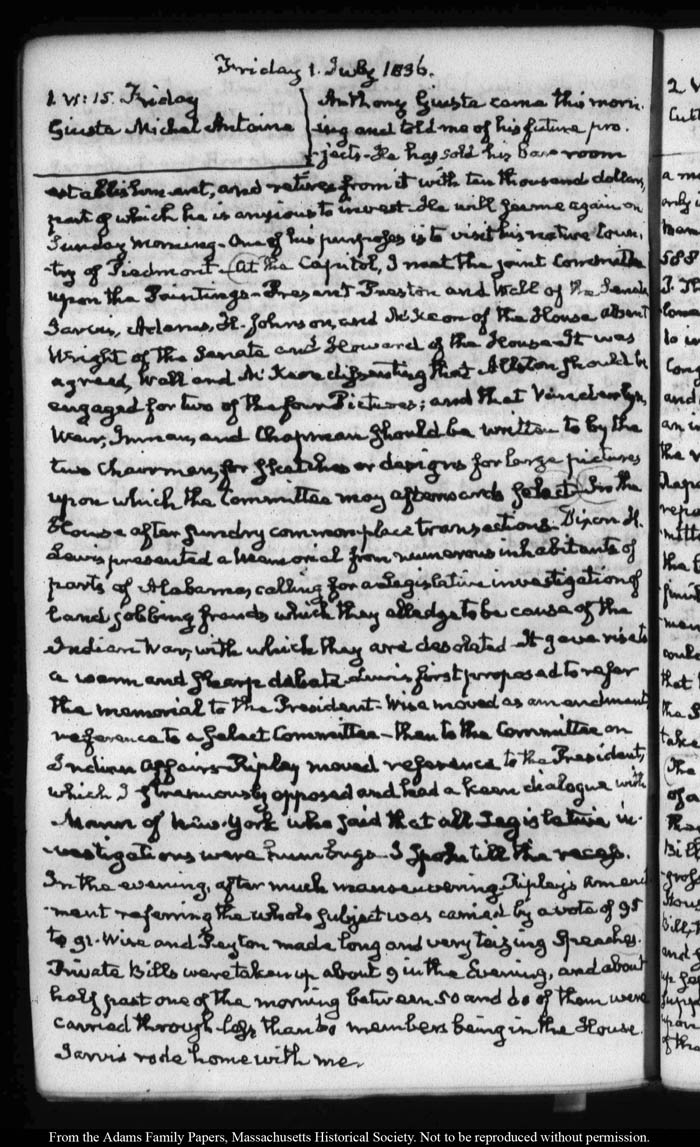 Friday 1. July 1836.
1. VI: 15. Friday
Giusta Michel Antoine
Anthony Giusta came this morn-
ing and told me of his future pro-
-jects. He has sold his Bar-room
establishment, and retires from it with ten thousand dollars,
part of which he is anxious to invest. He will come again on
Sunday morning. One of his purposes is to visit his native Coun-
-try of Piedmont. At the Capitol, I met the joint Committee
upon the Paintings. Present Preston and Wall of the Senate
Jarvis, Adams, R. Johnson, and McKeon of the House absent
Wright of the Senate and Howard of the House. It was
agreed, Wall and McKeon dissenting that Allston should be
engaged for two of the four Pictures; and that Vanderlyn,
Weir, Inman, and Chapman should be written to by the
two Chairmen, for sketches or designs for large pictures
upon which the Committee may afterwards select. In the
House after sundry commonplace transactions. Dixon H.
Lewis presented a Memorial from numerous inhabitants of
parts of Alabama, calling for a Legislative investigation of
land jobbing frauds which they alledge to be cause of the
Indian War, with which they are desolated. It gave rise to
a warm and sharp debate. Lewis first proposed to refer
the memorial to the President. Wise moved as amendment
reference to a select Committee - then to the Committee on
Indian Affairs. Ripley moved reference to the President,
which I strenuously opposed and had a keen dialogue with
Mann of New-York who said that all Legislative in-
-vestigations were humbugs. I spoke till the recess.
In the evening, after much manoeuvering Ripley's amend-
-ment referring the whole subject was carried by a vote of 95
to 91. Wise and Peyton made long and very teizing speeches.
Private Bills were taken up about 9 in the Evening, and about
half past one of the morning between 50 and 60 of them were
carried through. less than 60 members being in the House.
Jarvis rode home with me.
2 V
Cutt
588
From the Adams Family Papers, Massachusetts Historical Society. Not to be reproduced without permission.